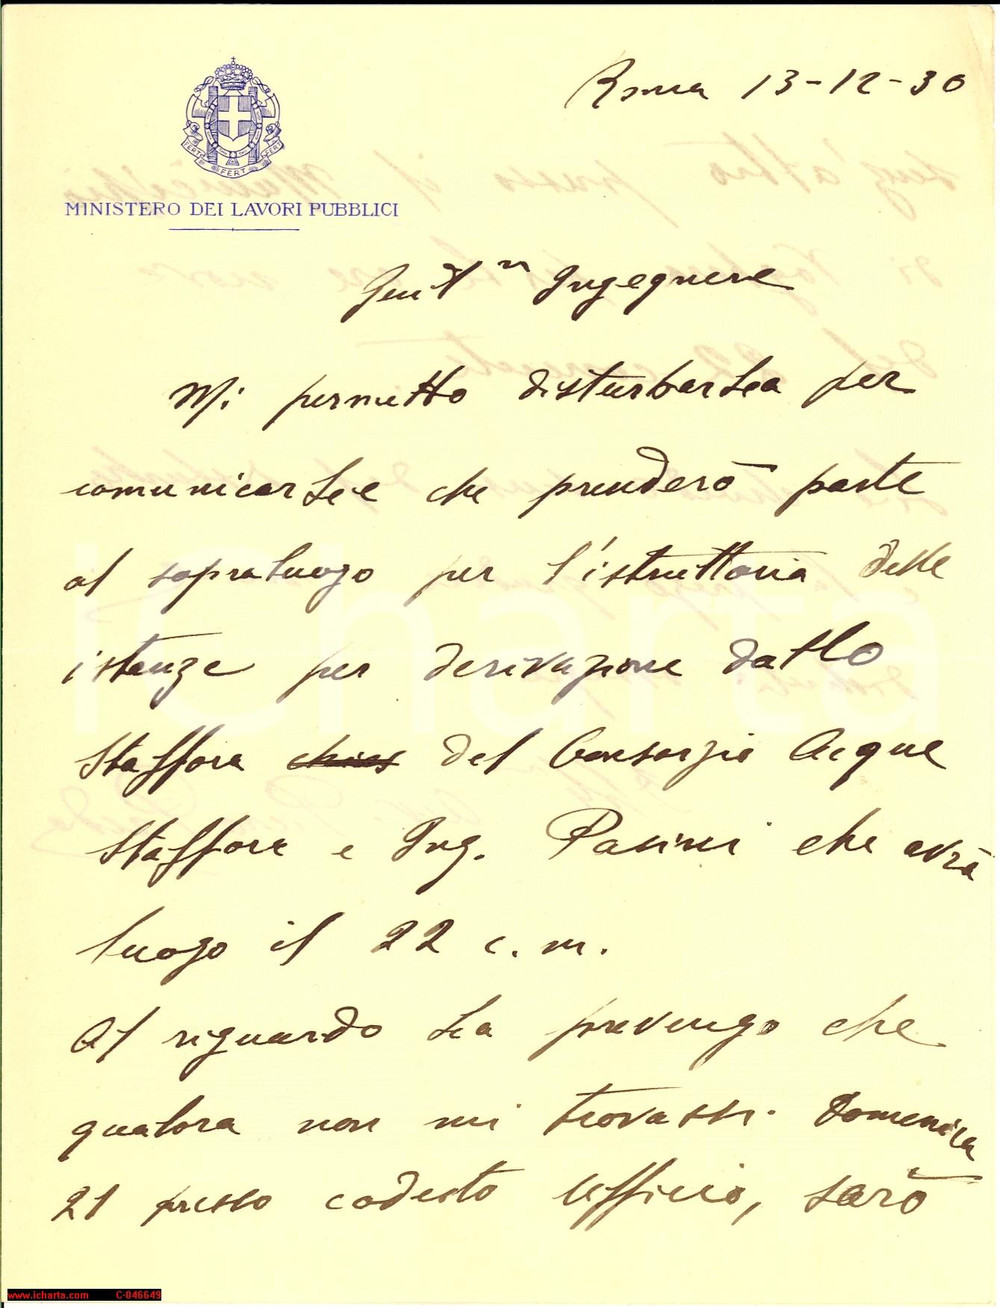 Roma 13-12-30
FERT FERT FERT
MINISTERO DEI LAVORI PUBBLICI
Gent mo Ingegnere
Mi permetto disturbarLa per
comunicarLe che prenderò parte
al sopraluogo per l'istruttoria delle
istanze per derivazione dallo
Staffora del Consorzio Acque
Staffora e Ing. Pasini che avrà
luogo il 22 c. m.
Al riguardo La prevengo che
qualora non mi trovassi Domenica
21 presso codesto Ufficio, sarò
iCharta
www.icharta.com C-046649